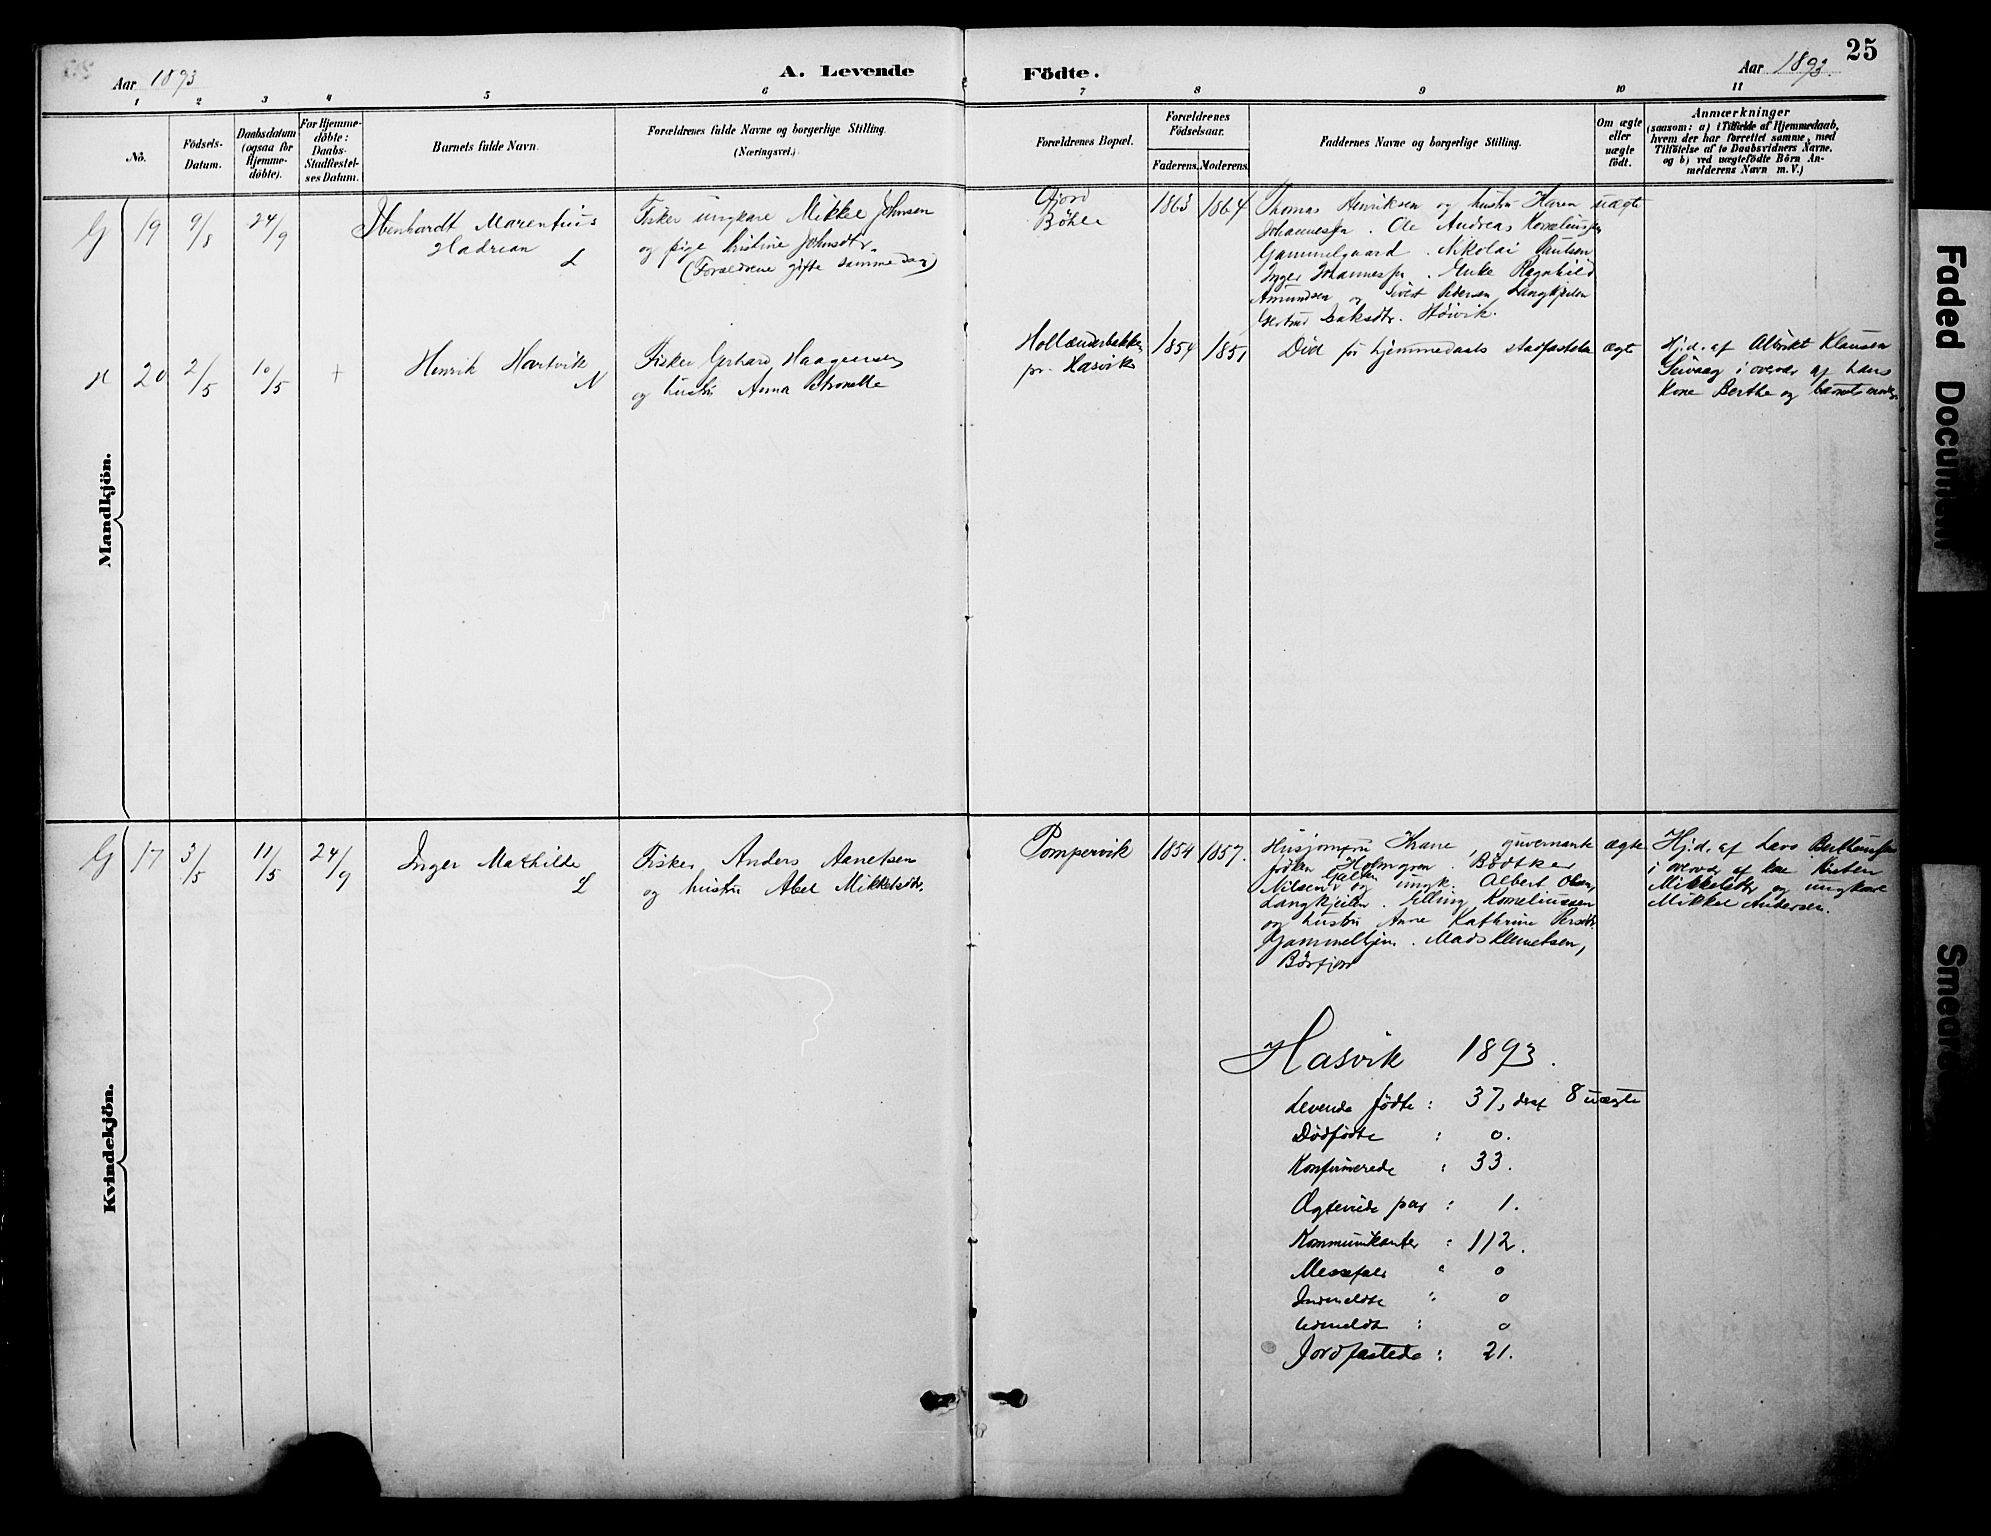 25
Aar 1893
A. Levende Födte.
Aar 1893.
1 2 3 4 5 6 7 8 9 10 11
Nö.
Födsels-
Datum.
Daabsdatum
(ogsaa for
Hjemme-
döbte).
For Hjemme-
döbte:
Daabs-
Stadfæstel-
ses Datum.
Barnets fulde Navn.
Forældrenes fulde Navne og borgerlige Stilling.
(Næringsvei.)
Forældrenes Bopæl.
Forældrenes
Födselsaar.
Faderens. Moderens.
Faddernes Navne og borgerlige Stilling.
Om ægte
eller
uægte
födt.
Anmærkninger
(saasom: a) i Tilfælde af Hjemmedaab,
hvem der har forrettet samme, med
Tilföielse af to Daabsvidners Navne.
og b) ved uægtefödte Börn An-
melderens Navn m. V.)
Mandkjön.
G 19 9/8 24/9
Marentius
Hadrian L
Fisker ungkare Mikkel Johnsen
og pige Kristine Johnsdtr.
(Forældrene gifte samme dag)
Böhle
1863 1864
Thomas Henriksen og hustru Karen
Ole Andreas
Gammelgaard. Nikolai Paulsen
Inger Enke Ragnhild
Amundsen og Sivert Pedersen Langkjeilen
Isaksdtr. Höivik.
uægte
H 20 2/5 10/5 +
Henrik Hartvik
N
Fisker Gerhard Haagensen
og hustru Anna Petronelle
Hollænderbakken
pr. Hasvik
1854 1851
Död för hjemmedaabs stadfæstelse
ægte
Hj.d. af Albrikt Klausen
i overvær af hans
Kone Berthe og barnets moder
Kvindekjön.
G 17 3/5 11/5 24/9
Inger Mathilde
L
Fisker Anders Aanetsen
og hustru Abel Mikkelsdtr.
Pompervik
1854 1857.
Husjomfru Krane, guvernante
fröken Holmgren Bödtker
Nilsen og ungk. Albert Olsen,
Langkjeilen. Elling Korneliussen
og hustru Anne Kathrine Persdtr.
Mads Klemetsen,
Börfjord
ægte
Hj.d. af Lars
i overvær af kone Kirsten
Mikkelsdtr og ungkare
Mikkel Andersen.
Hasvik 1893.
Levende födte: 37, deraf 8 uægte
Dödfödte : 0.
Konfirmerede : 33.
Ægteviede par : 1.
Kommunikanter : 112.
Messefald : 0
Indmeldte : 0
Udmeldte : 0
Jordfæstede : 21.
Faded Document
Smeared